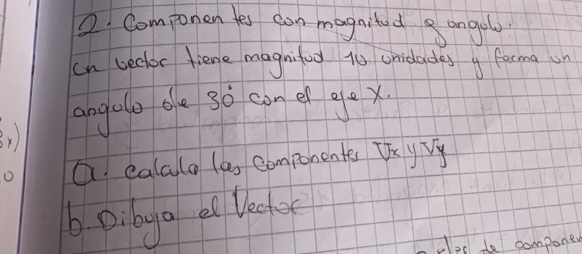 2. Componentes con magnitud & angulo.
un vector tiene magnitud 10 unidades y forma un
angulo de 30° con el eje X.
x)
o
a. calcula las componentes Vx y Vy
b. Dibuja el Vector
de componen